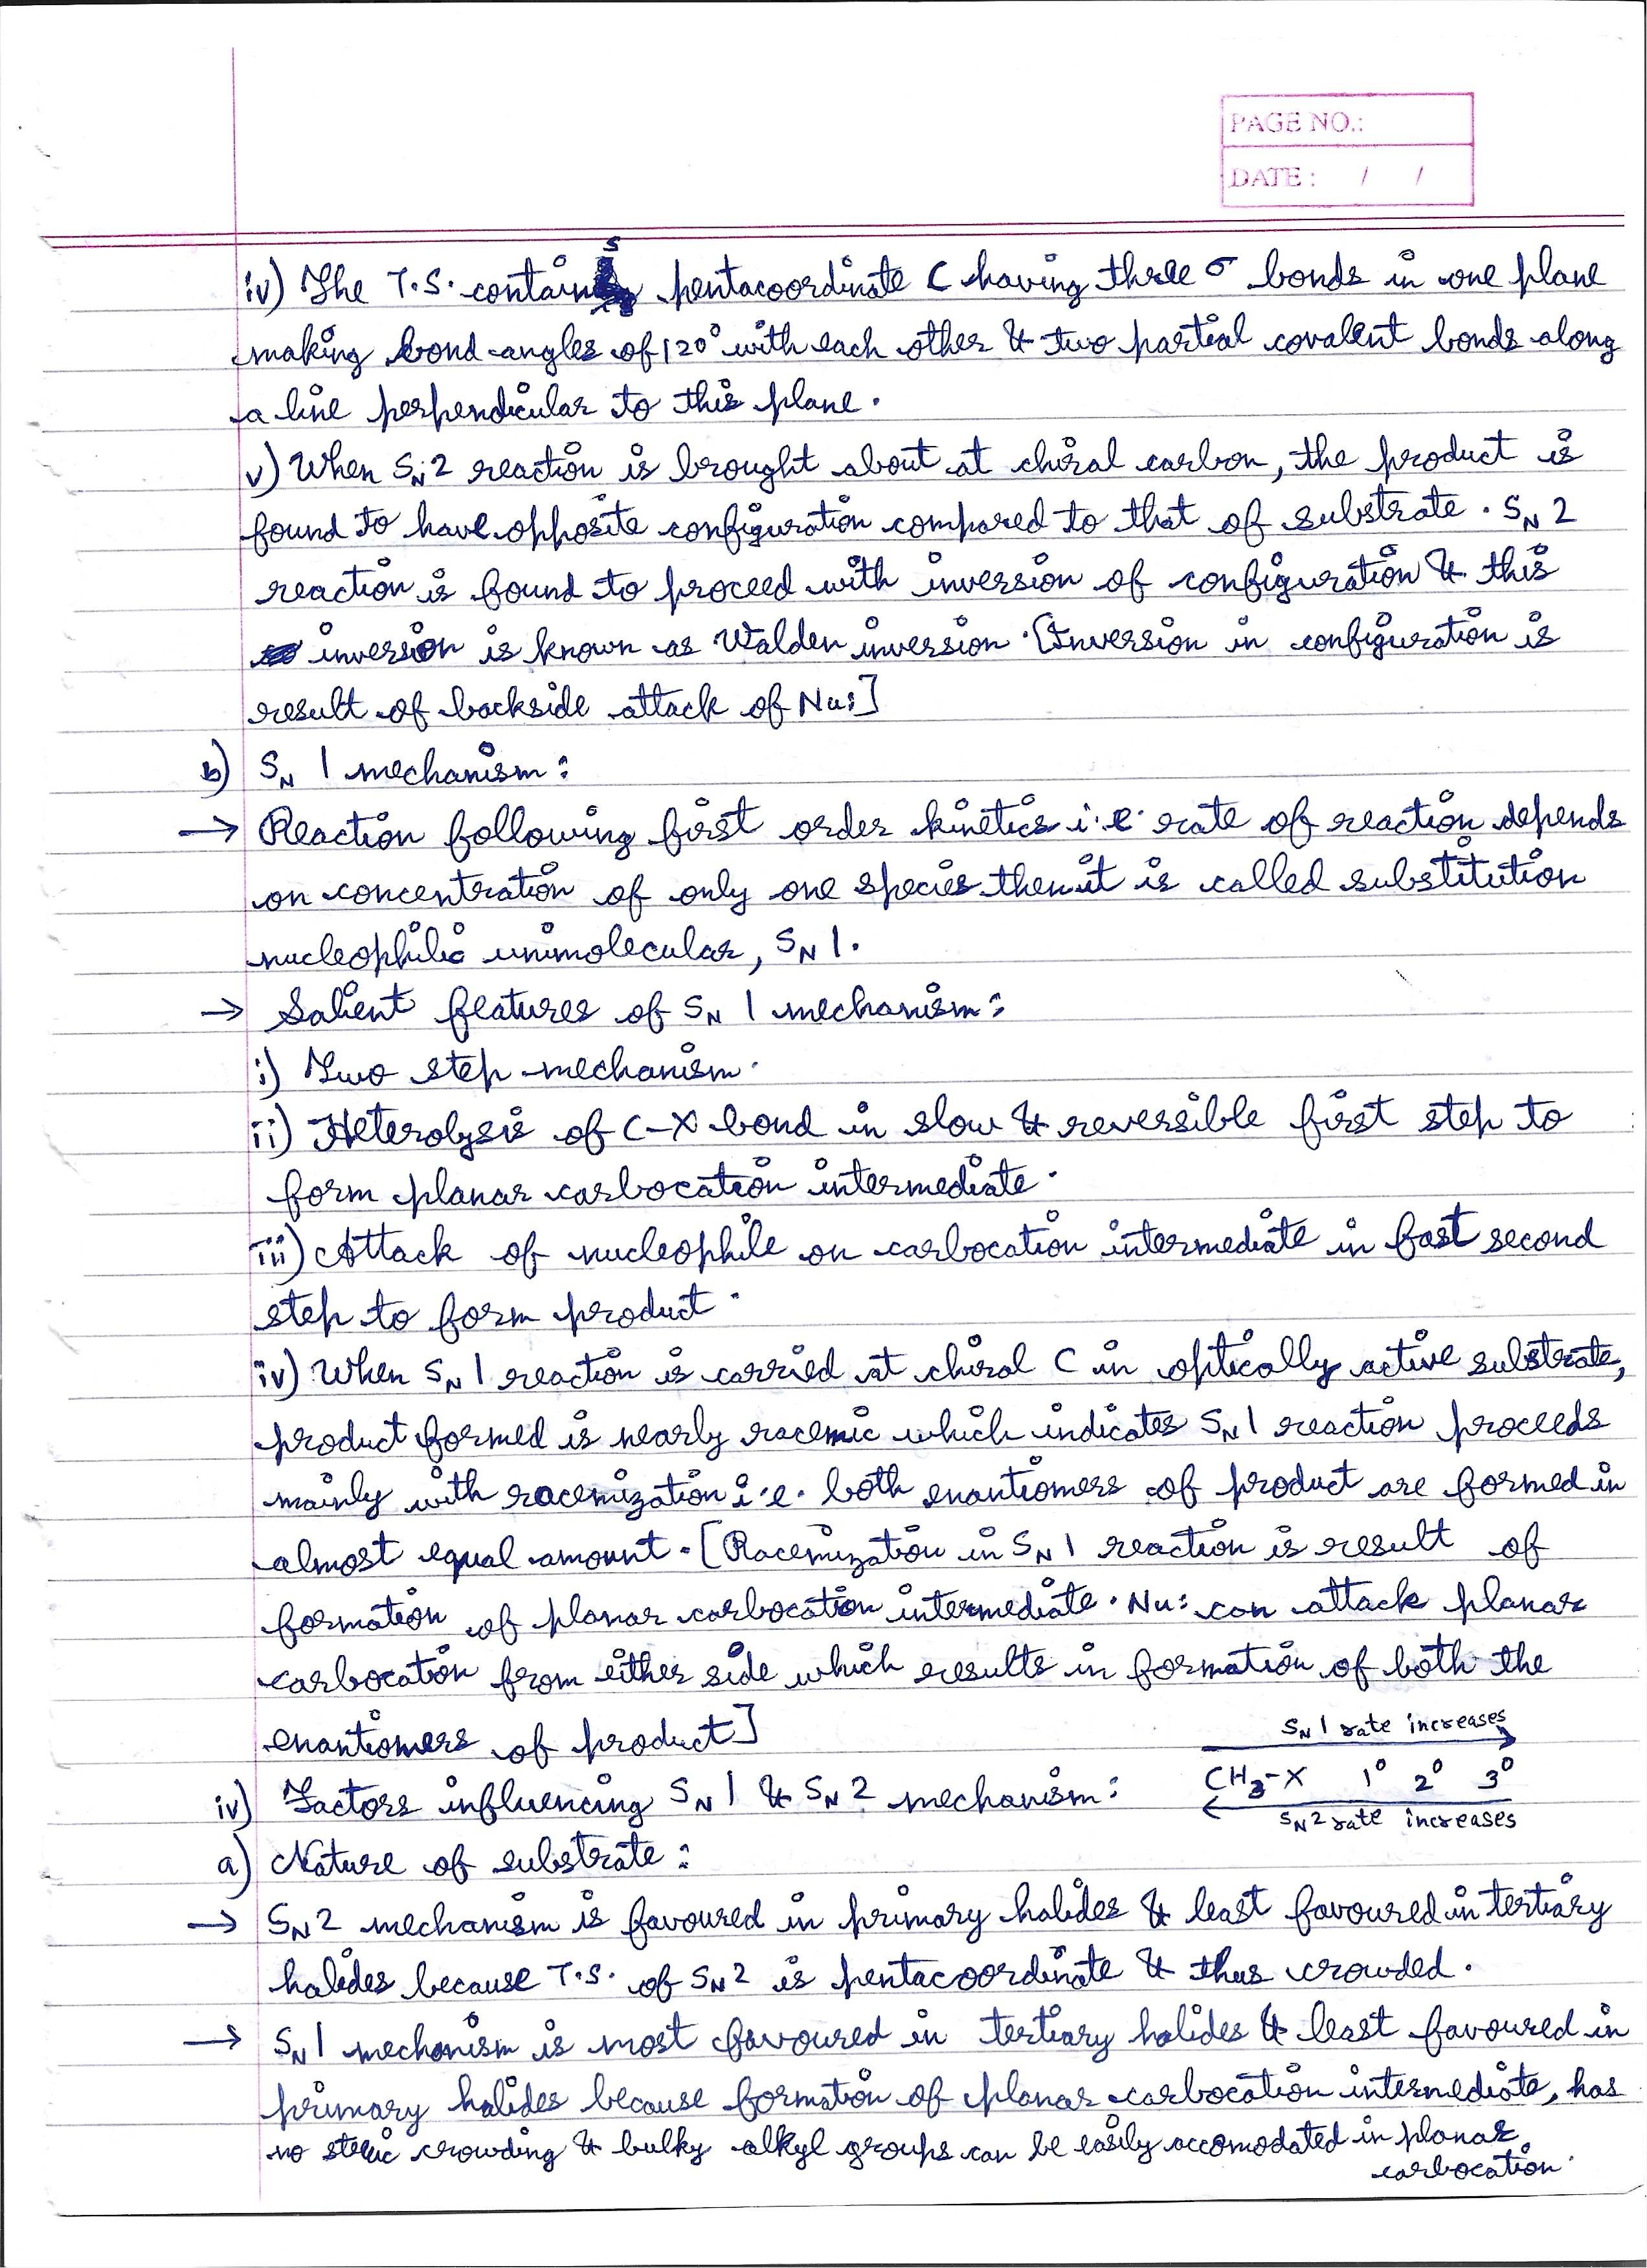 PAGE NO.:
DATE : / /
iv) The T.S. contains pentacoordinate C having three σ bonds in one plane
making bond angles of 120° with each other & two partial covalent bonds along
a line perpendicular to this plane.
v) When SN2 reaction is brought about at chiral carbon, the product is
found to have opposite configuration compared to that of substrate. SN2
reaction is found to proceed with inversion of configuration & this
inversion is known as Walden inversion. [Inversion in configuration is
result of backside attack of Nu:]
b) SN 1 mechanism:
→ Reaction following first order kinetics i.e. rate of reaction depends
on concentration of only one species then it is called substitution
nucleophilic unimolecular, SN 1.
→ Salient features of SN 1 mechanism:
i) Two step mechanism.
ii) Heterolysis of C-X bond in slow & reversible first step to
form planar carbocation intermediate.
iii) Attack of nucleophile on carbocation intermediate in fast second
step to form product.
iv) When SN 1 reaction is carried at chiral C in optically active substrate,
product formed is nearly racemic which indicates SN1 reaction proceeds
mainly with racemization i.e. both enantiomers of product are formed in
almost equal amount. [Racemization in SN 1 reaction is result of
formation of planar carbocation intermediate. Nu: can attack planar
carbocation from either side which results in formation of both the
enantiomers of product]
SN 1 rate increases
iv) Factors influencing SN 1 & SN 2 mechanism: CH3-X 1° 2° 3°
SN2 rate increases
a) Nature of substrate:
→ SN2 mechanism is favoured in primary halides & least favoured in tertiary
halides because T.S. of SN2 is pentacoordinate & thus crowded.
→ SN1 mechanism is most favoured in tertiary halides & least favoured in
primary halides because formation of planar carbocation intermediate, has
no steric crowding & bulky alkyl groups can be easily accomodated in planar
carbocation.